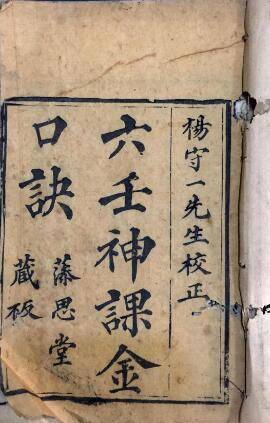 楊守一先生校正
六壬神課金
口訣
藻思堂
藏板